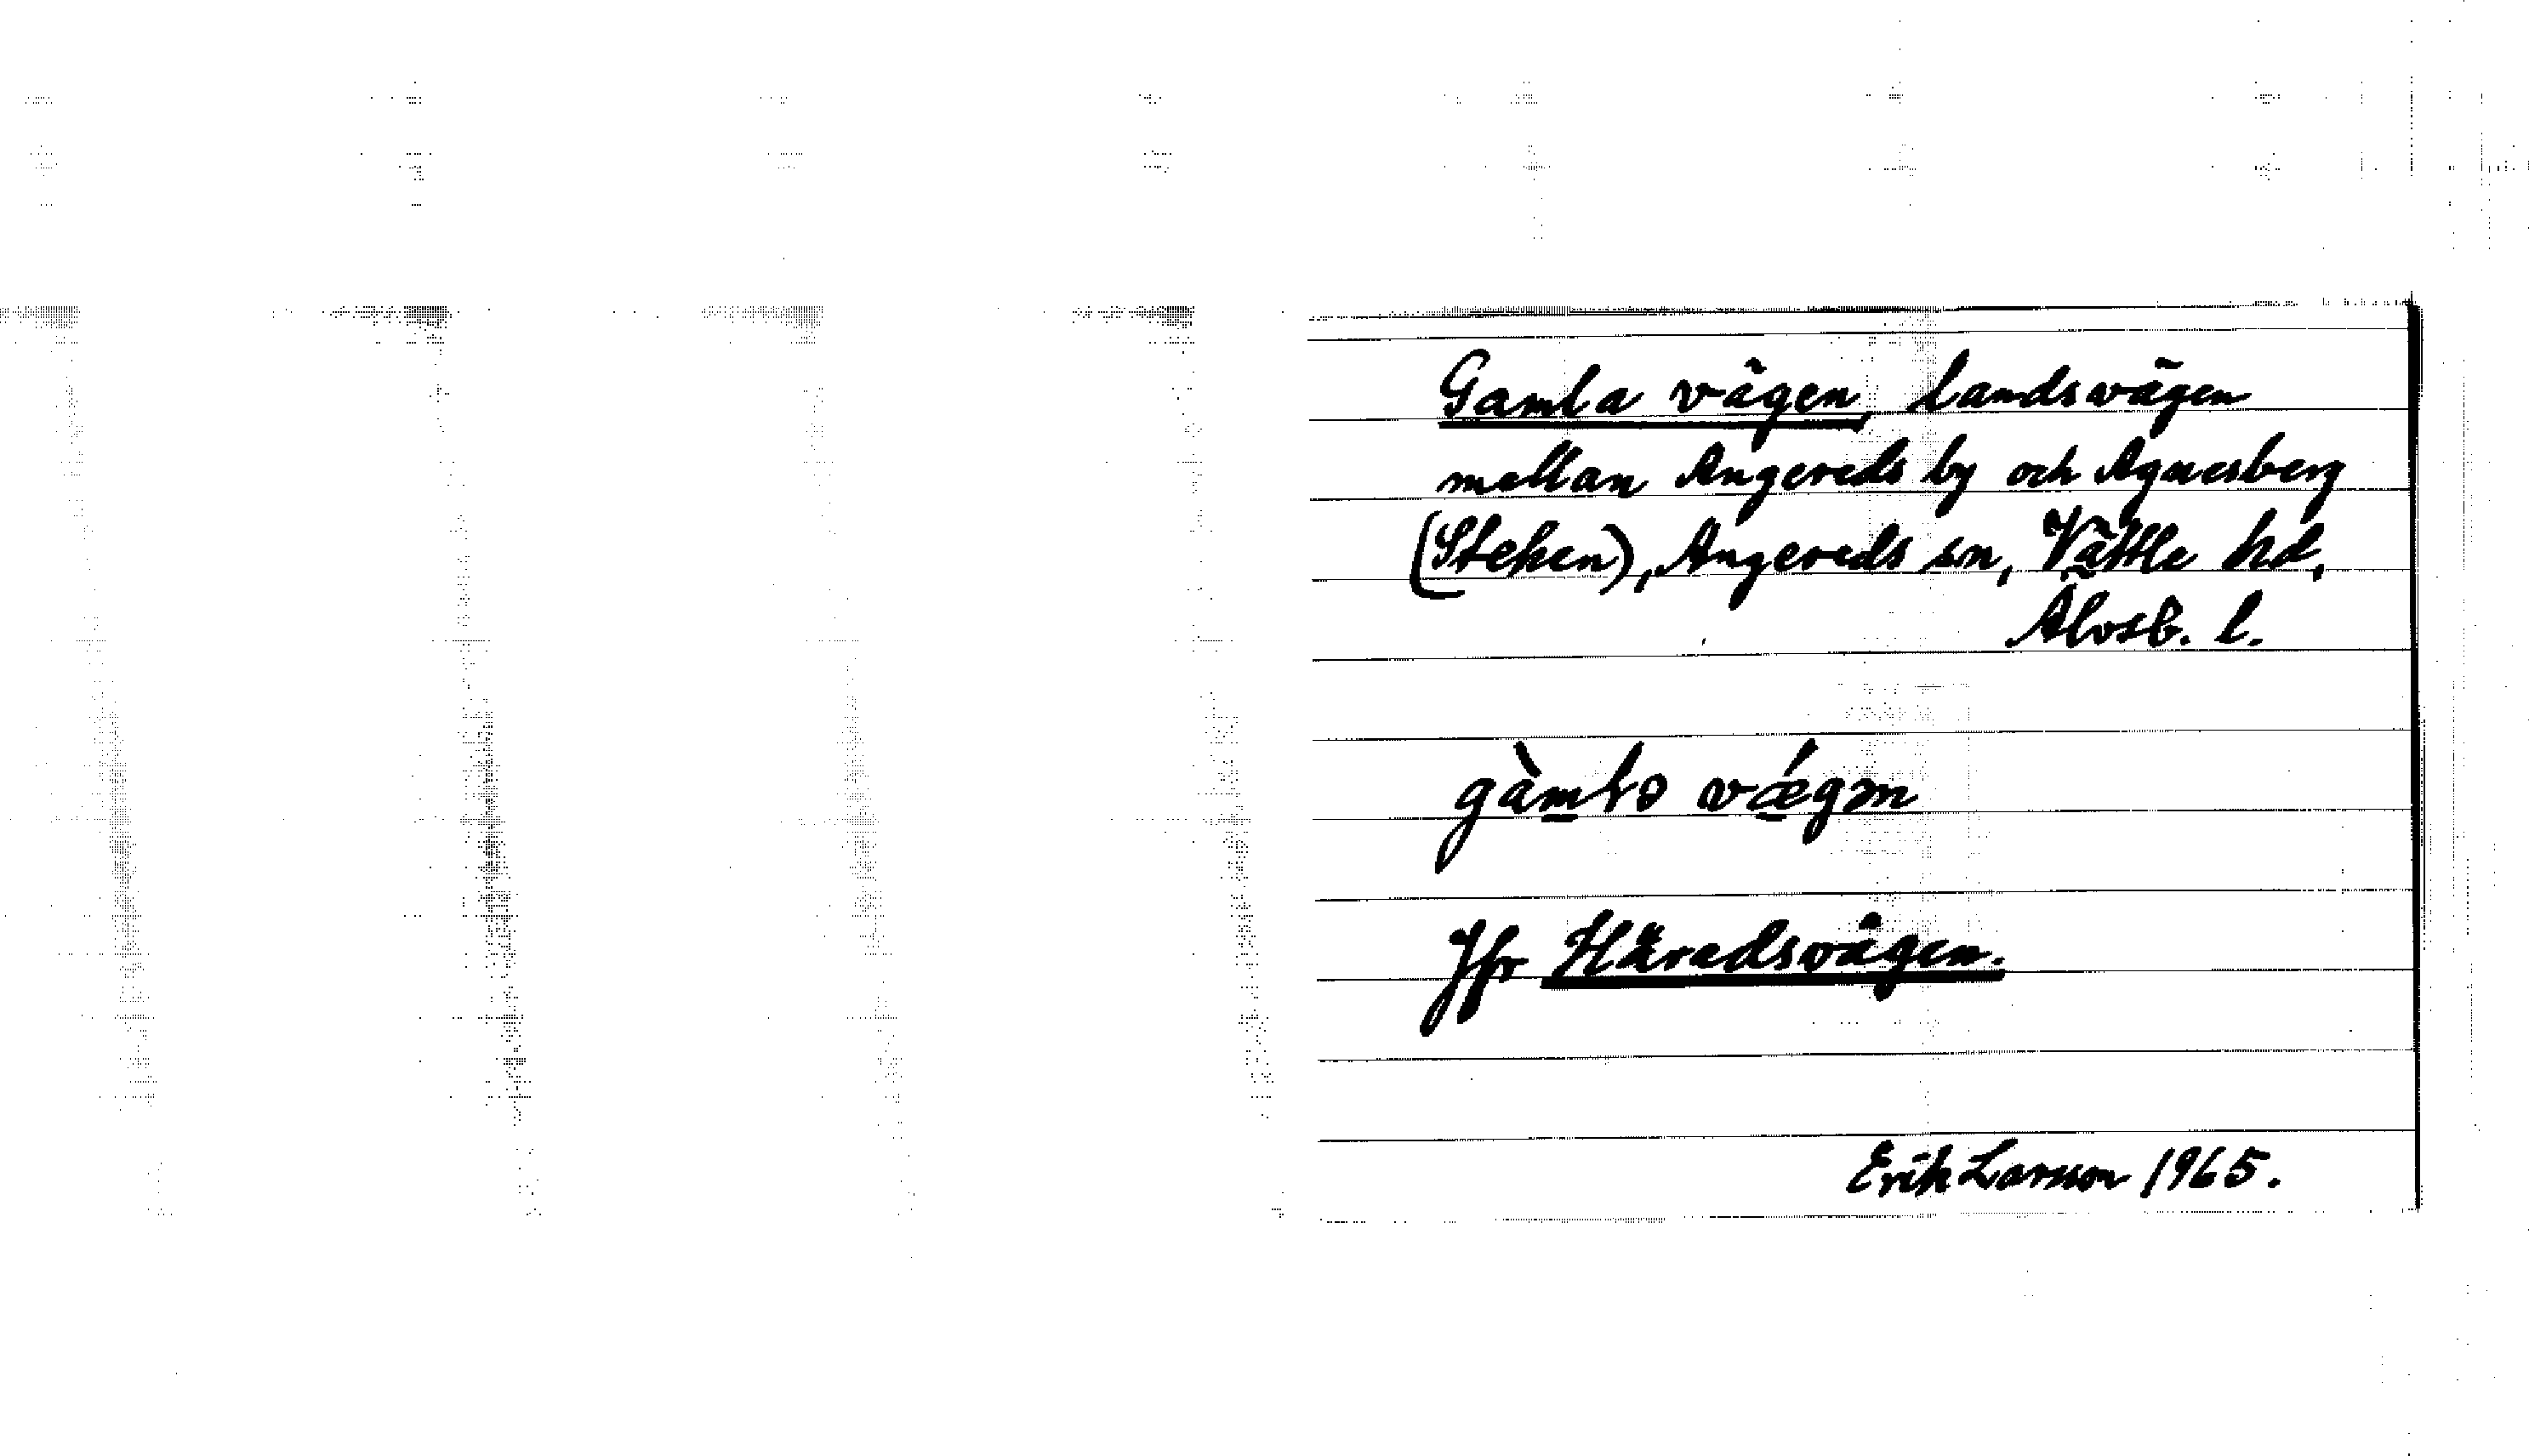 Gamla vägen, landsvägen
mellan Angereds by och Agnesberg
(Steken), Angereds sn, Vättle hd,
Älvsb. l.
gàmlə vǽgən
Jfr Häradsvägen.
Erik Larsson 1965.